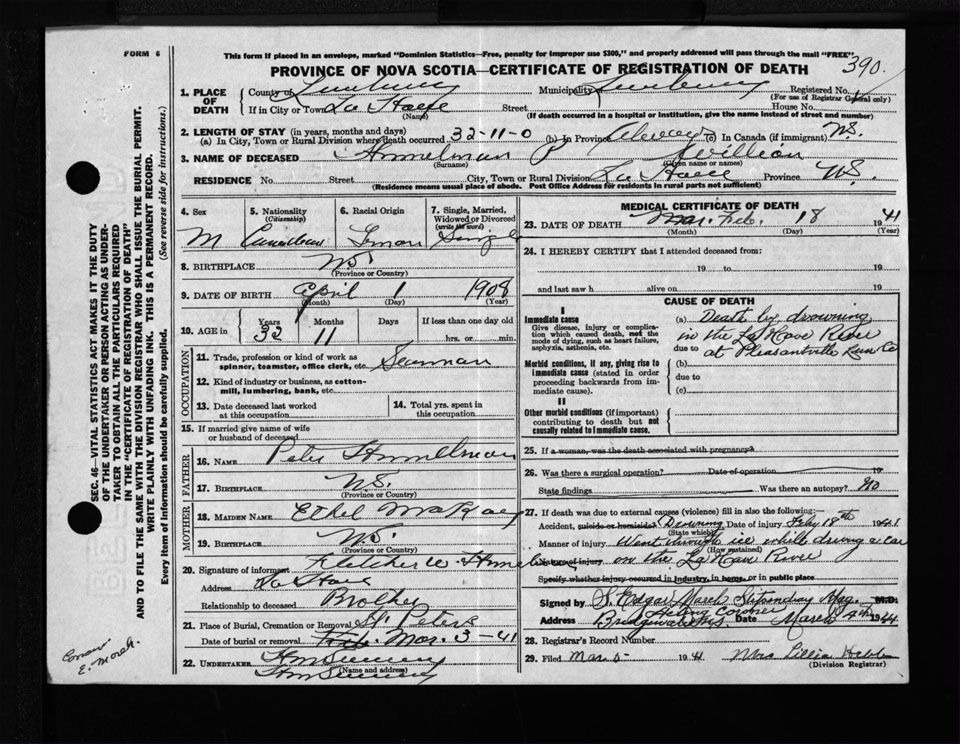 FORM 6
This form if placed in an envelope, marked "Dominion Statistics—Free, penalty for improper use $300," and properly addressed will pass through the mail "FREE"
PROVINCE OF NOVA SCOTIA—CERTIFICATE OF REGISTRATION OF DEATH 390.
1. PLACE OF DEATH County of Lunenburg Municipality Lunenburg Registered No.
(For use of Registrar General only)
If in City or Town La Have Street House No.
(Name) (If death occurred in a hospital or institution, give the name instead of street and number)
2. LENGTH OF STAY (in years, months and days)
(a) In City, Town or Rural Division where death occurred 32-11-0 (b) In Province Always (c) In Canada (if immigrant) N.S.
3. NAME OF DECEASED Himmelman P William
(Surname) (Given name or names)
RESIDENCE No. Street City, Town or Rural Division La Have Province N.S.
(Residence means usual place of abode. Post Office Address for residents in rural parts not sufficient)
4. Sex M
5. Nationality (Citizenship) Canadian
6. Racial Origin
7. Single, Married, Widowed or Divorced (write the word) Single
8. BIRTHPLACE N.S.
(Province or Country)
9. DATE OF BIRTH April 1 1908
(Month) (Day) (Year)
10. AGE in Years Months Days If less than one day old
32 11 hrs. or min.
OCCUPATION
11. Trade, profession or kind of work as spinner, teamster, office clerk, etc. Seaman
12. Kind of industry or business, as cotton-mill, lumbering, bank, etc.
13. Date deceased last worked at this occupation
14. Total yrs. spent in this occupation
15. If married give name of wife or husband of deceased
FATHER
16. NAME Peter Himmelman
17. BIRTHPLACE N.S.
(Province or Country)
MOTHER
18. MAIDEN NAME Ethel
19. BIRTHPLACE N.S.
(Province or Country)
20. Signature of informant Fletcher W. Himmelman
Address La Have
Relationship to deceased Brother
21. Place of Burial, Cremation or Removal St. Peters
Date of burial or removal Feb. Mar. 3-41
22. UNDERTAKER
(Name and address)
MEDICAL CERTIFICATE OF DEATH
23. DATE OF DEATH Mar. Feb. 18 1941
(Month) (Day) (Year)
24. I HEREBY CERTIFY that I attended deceased from:
19 to 19
and last saw h alive on 19
CAUSE OF DEATH
I
Immediate cause (a) Death by drowning
Give disease, injury or complication which caused death, not the mode of dying, such as heart failure, asphyxia, asthenia, etc.
in the La Have River
due to at Pleasantville Lun Co
Morbid conditions, if any, giving rise to immediate cause (stated in order proceeding backwards from immediate cause).
(b)
due to
(c)
II
Other morbid conditions (if important) contributing to death but not causally related to immediate cause.
25. If a woman, was the death associated with pregnancy?
26. Was there a surgical operation? Date of operation 19
State findings Was there an autopsy? No
27. If death was due to external causes (violence) fill in also the following:
Accident, suicide or homicide? Drowning Date of injury Feby 18th 1941
(State which)
Manner of injury Went through ice while driving a car
(How sustained)
Nature of injury on the La Have River
Specify whether injury occurred in industry, in home, or in public place
Signed by S. Edgar March Stipendiary Mag. M.D.
Acting Coroner
Address Bridgewater N.S. Date March 4th 1941
28. Registrar's Record Number
29. Filed Mar. 5 1941 Mrs Lillia
(Division Registrar)
SEC. 46—VITAL STATISTICS ACT MAKES IT THE DUTY
OF THE UNDERTAKER OR PERSON ACTING AS UNDER-
TAKER TO OBTAIN ALL THE PARTICULARS REQUIRED
IN THE "CERTIFICATE OF REGISTRATION OF DEATH"
AND TO FILE THE SAME WITH THE DIVISION REGISTRAR WHO SHALL ISSUE THE BURIAL PERMIT.
WRITE PLAINLY WITH UNFADING INK. THIS IS A PERMANENT RECORD.
Every item of information should be carefully supplied. (See reverse side for instructions.)